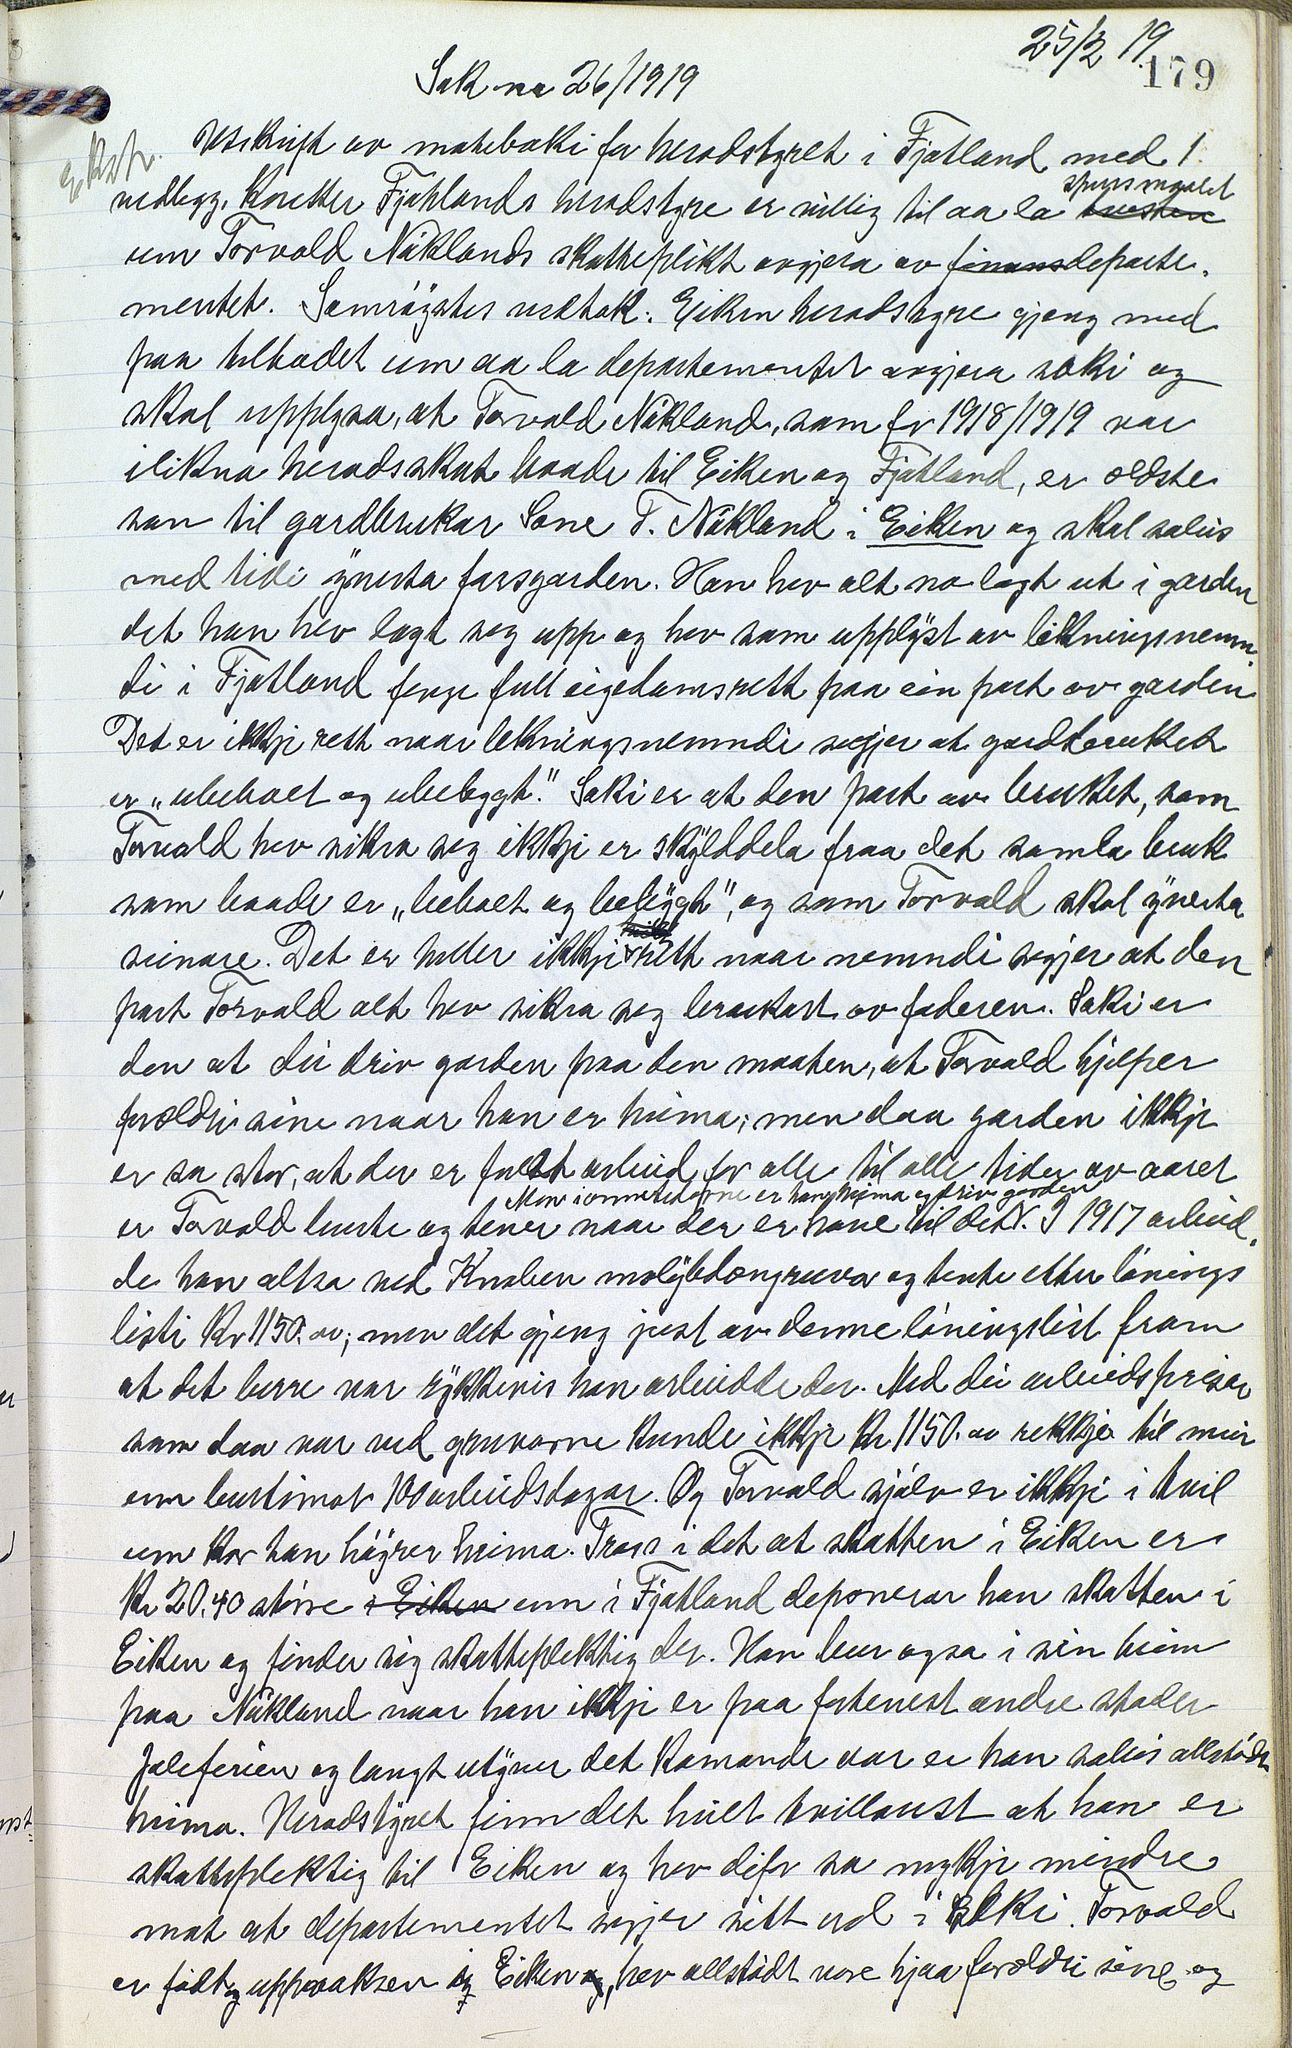 25/2 19
179
Sak no 26/1919
Ekstr.
Utskrift av møteboki for heradstyret i Fjotland med 1
vedlegg. Koretter Fjotlands heradstyre er villig til aa la spursmaalet
um Torvald Nåklands skatteplikt avgjera av finansdeparte-
mentet. Samrøystes vedtak: Eiken heradstyre gjeng med
paa tilbodet um aa la departementet avgjera saki og
skal upplysa, at Torvald Nåkland, som for 1918/1919 var
ilikna heradsskat baade til Eiken og Fjotland, er eldste
son til gardbrukar Sone T. Nåkland i Eiken og skal soleis
med tidi yverta farsgarden. Han hev alt no lagt ut i garden
det han hev lagt seg upp og hev som upplyst av likningsnemn-
di i Fjotland fenge full eigedomsrett paa ein part av garden
Det er ikkje rett naar likningsnemndi segjer at gardbruket
er "ubeboet og ubebygt". Saki er at den part av bruket, som
Torvald hev sikra seg ikkje er skylddela fraa det samla bruk
som baade er "beboet og bebygt", og som Torvald skal yverta
seinare. Det er heller ikkje rett naar nemndi segjer at den
part Torvald alt hev sikra seg brukast av faderen. Saki er
den at dei driv garden paa den maaten, at Torvald hjelper
foreldri sine naar han er heima; men daa garden ikkje
er so stor, at der er fullt arbeid for alle til alle tider av aaret
Men i onnetiderne er han heima og driv garden
er Torvald burte og tener naar der er høve til det. I 1917 arbeid-
de han altsa ved Knaben molybdængruvor og tente etter lønings
listi Kr 1150.00; men det gjeng just av denne løningslist fram
at det berre var rykkevis han arbeidde der. Med dei arbeidsprisar
som daa var ved gruvorne kunde ikkje Kr. 1150.00 rekkje til meir
enn burtimot 100 arbeidsdagar. Og Torvald sjølv er ikkje i tvil
um kor han høyrer heima. Tross i det at skatten i Eiken er
Kr 20.40 større i Eiken enn i Fjotland deponerar han skatten i
Eiken og finder sig skatteplektig der. Han bur ogsa i sin heim
paa Nåkland naar han ikkje er paa fortenest andre stader
Juleferien og langt utyver det komande aar er han soleis allstødt
heima. Heradstyret finn det heilt tvillaust at han er
skatteplektig til Eiken og hev difor so mykje mindre
mot at departementet segjer sitt ord i saki. Torvald
er født og uppvaksen i Eiken, hev allstødt vore hjaa foreldri sine og